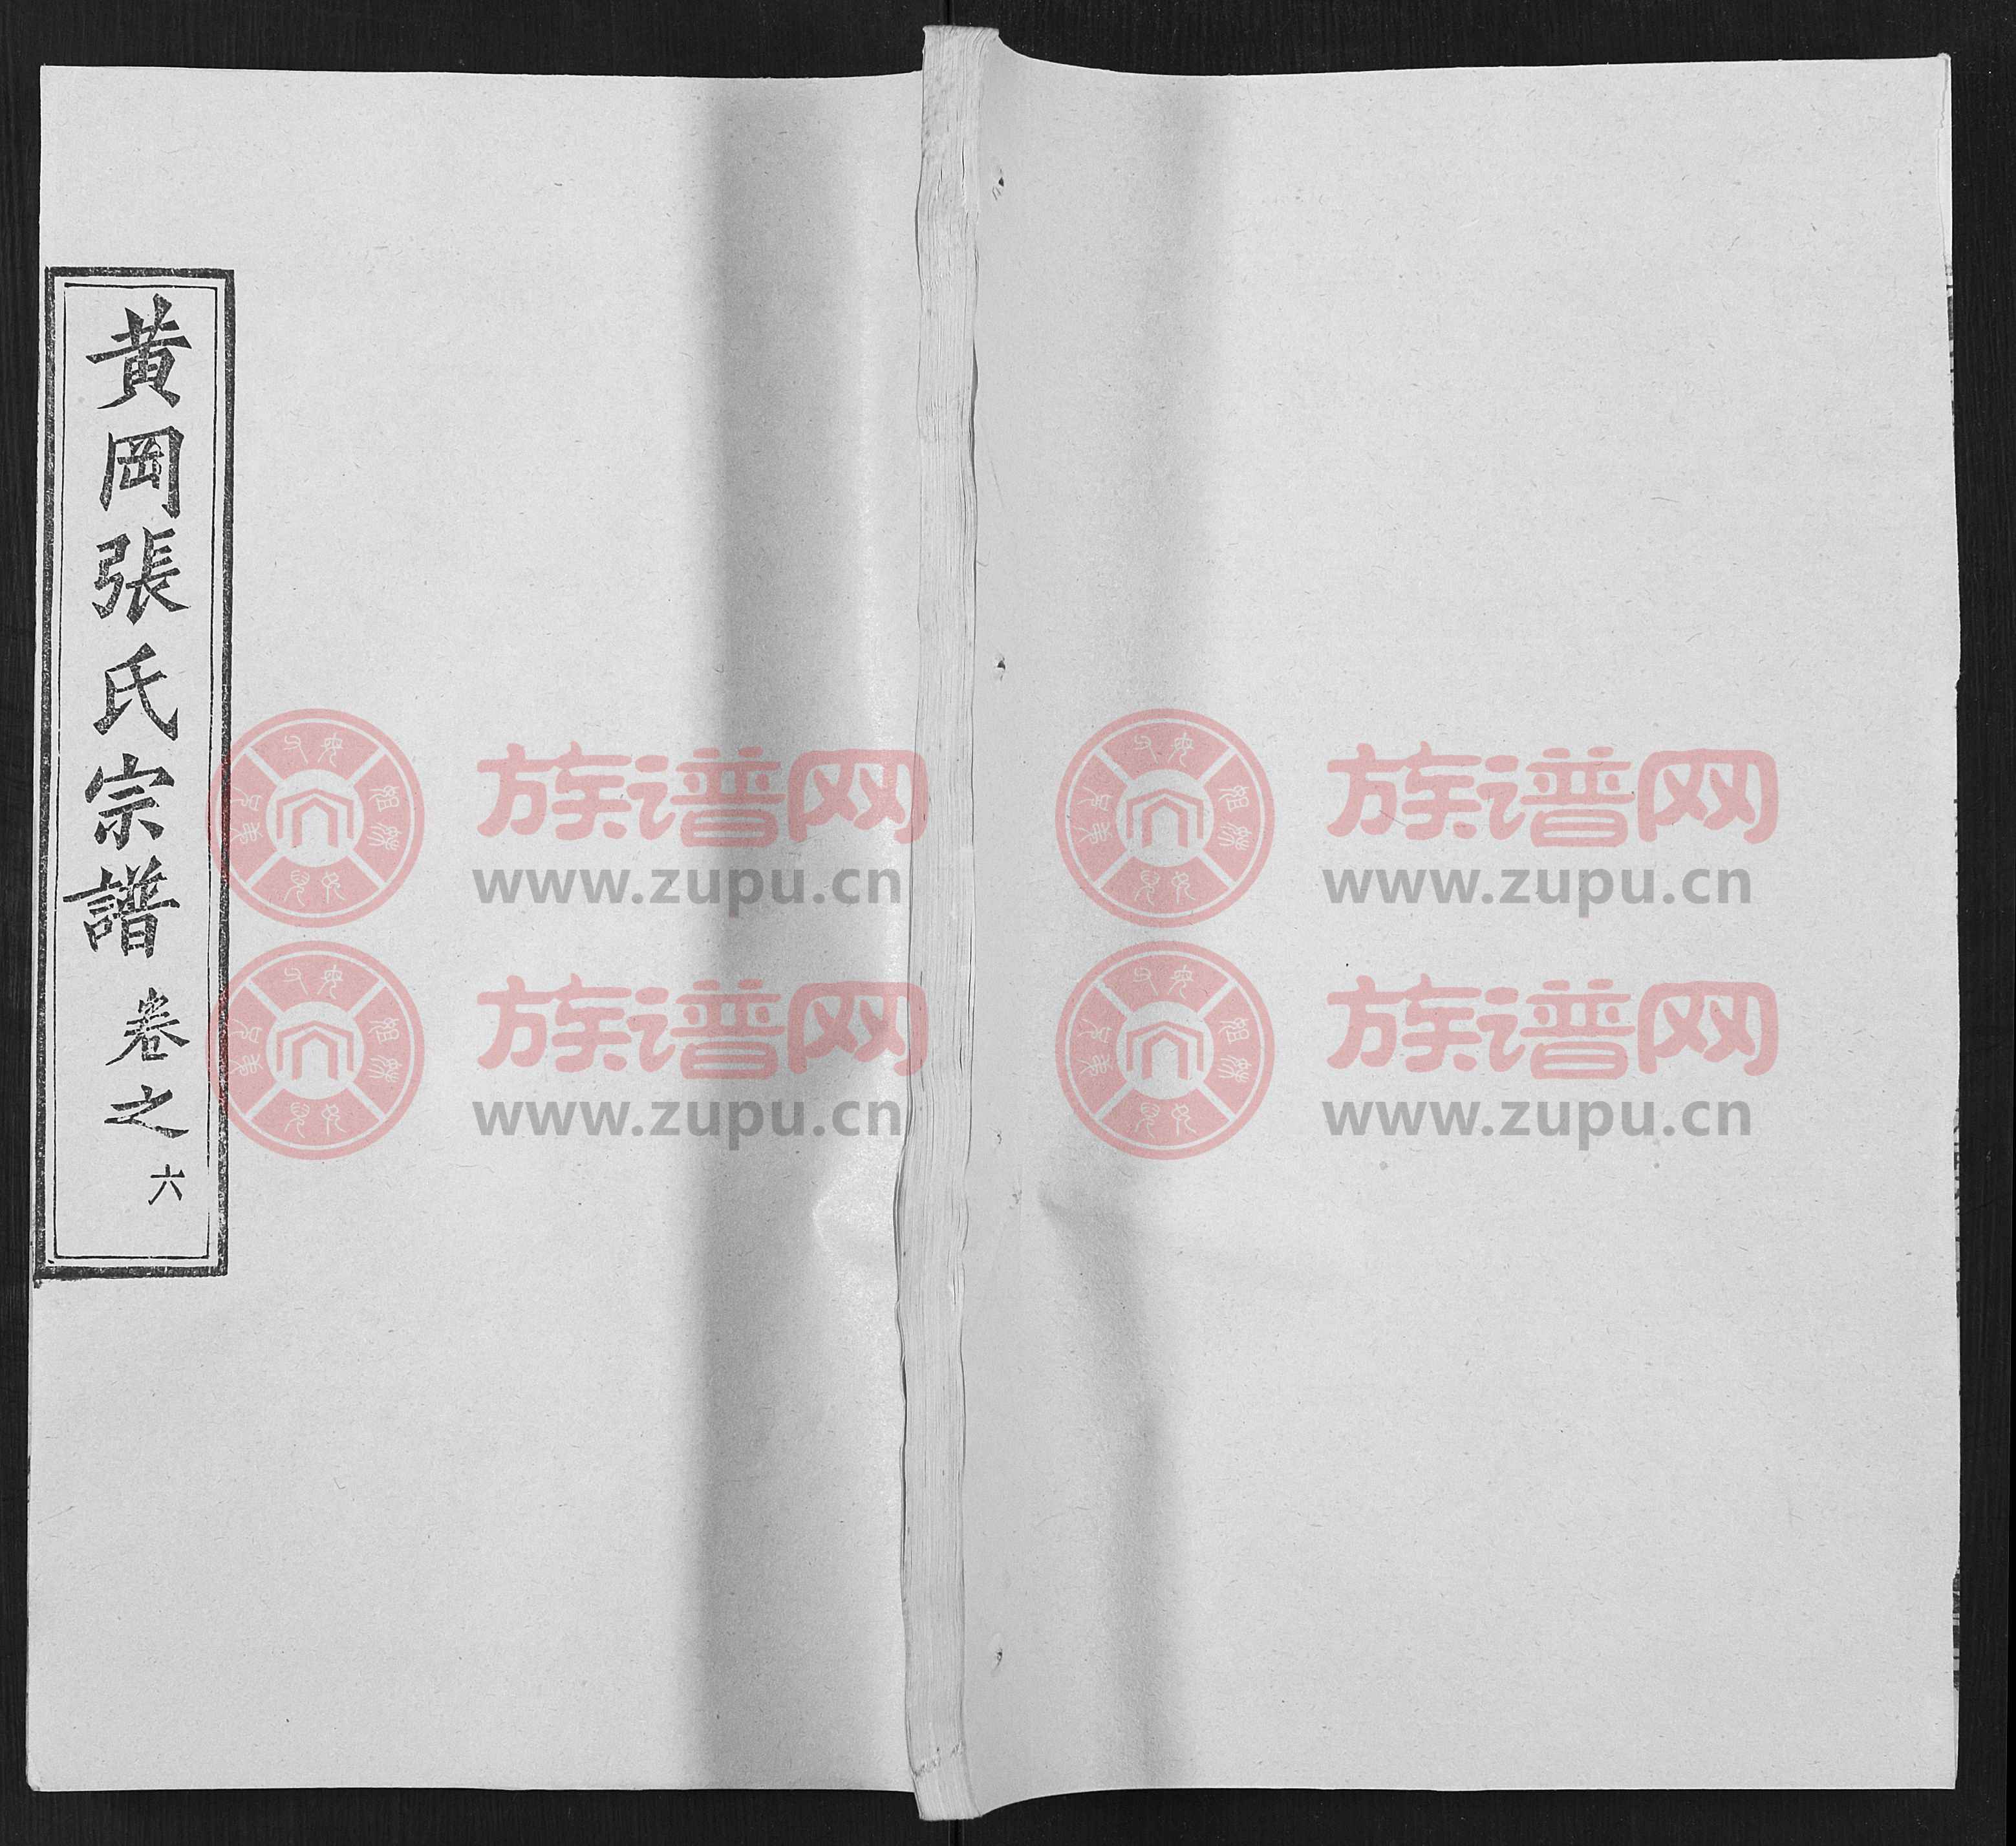 黄岡張氏宗譜 卷之六
族谱网
www.zupu.cn
族谱网
www.zupu.cn
族谱网
www.zupu.cn
族谱网
www.zupu.cn